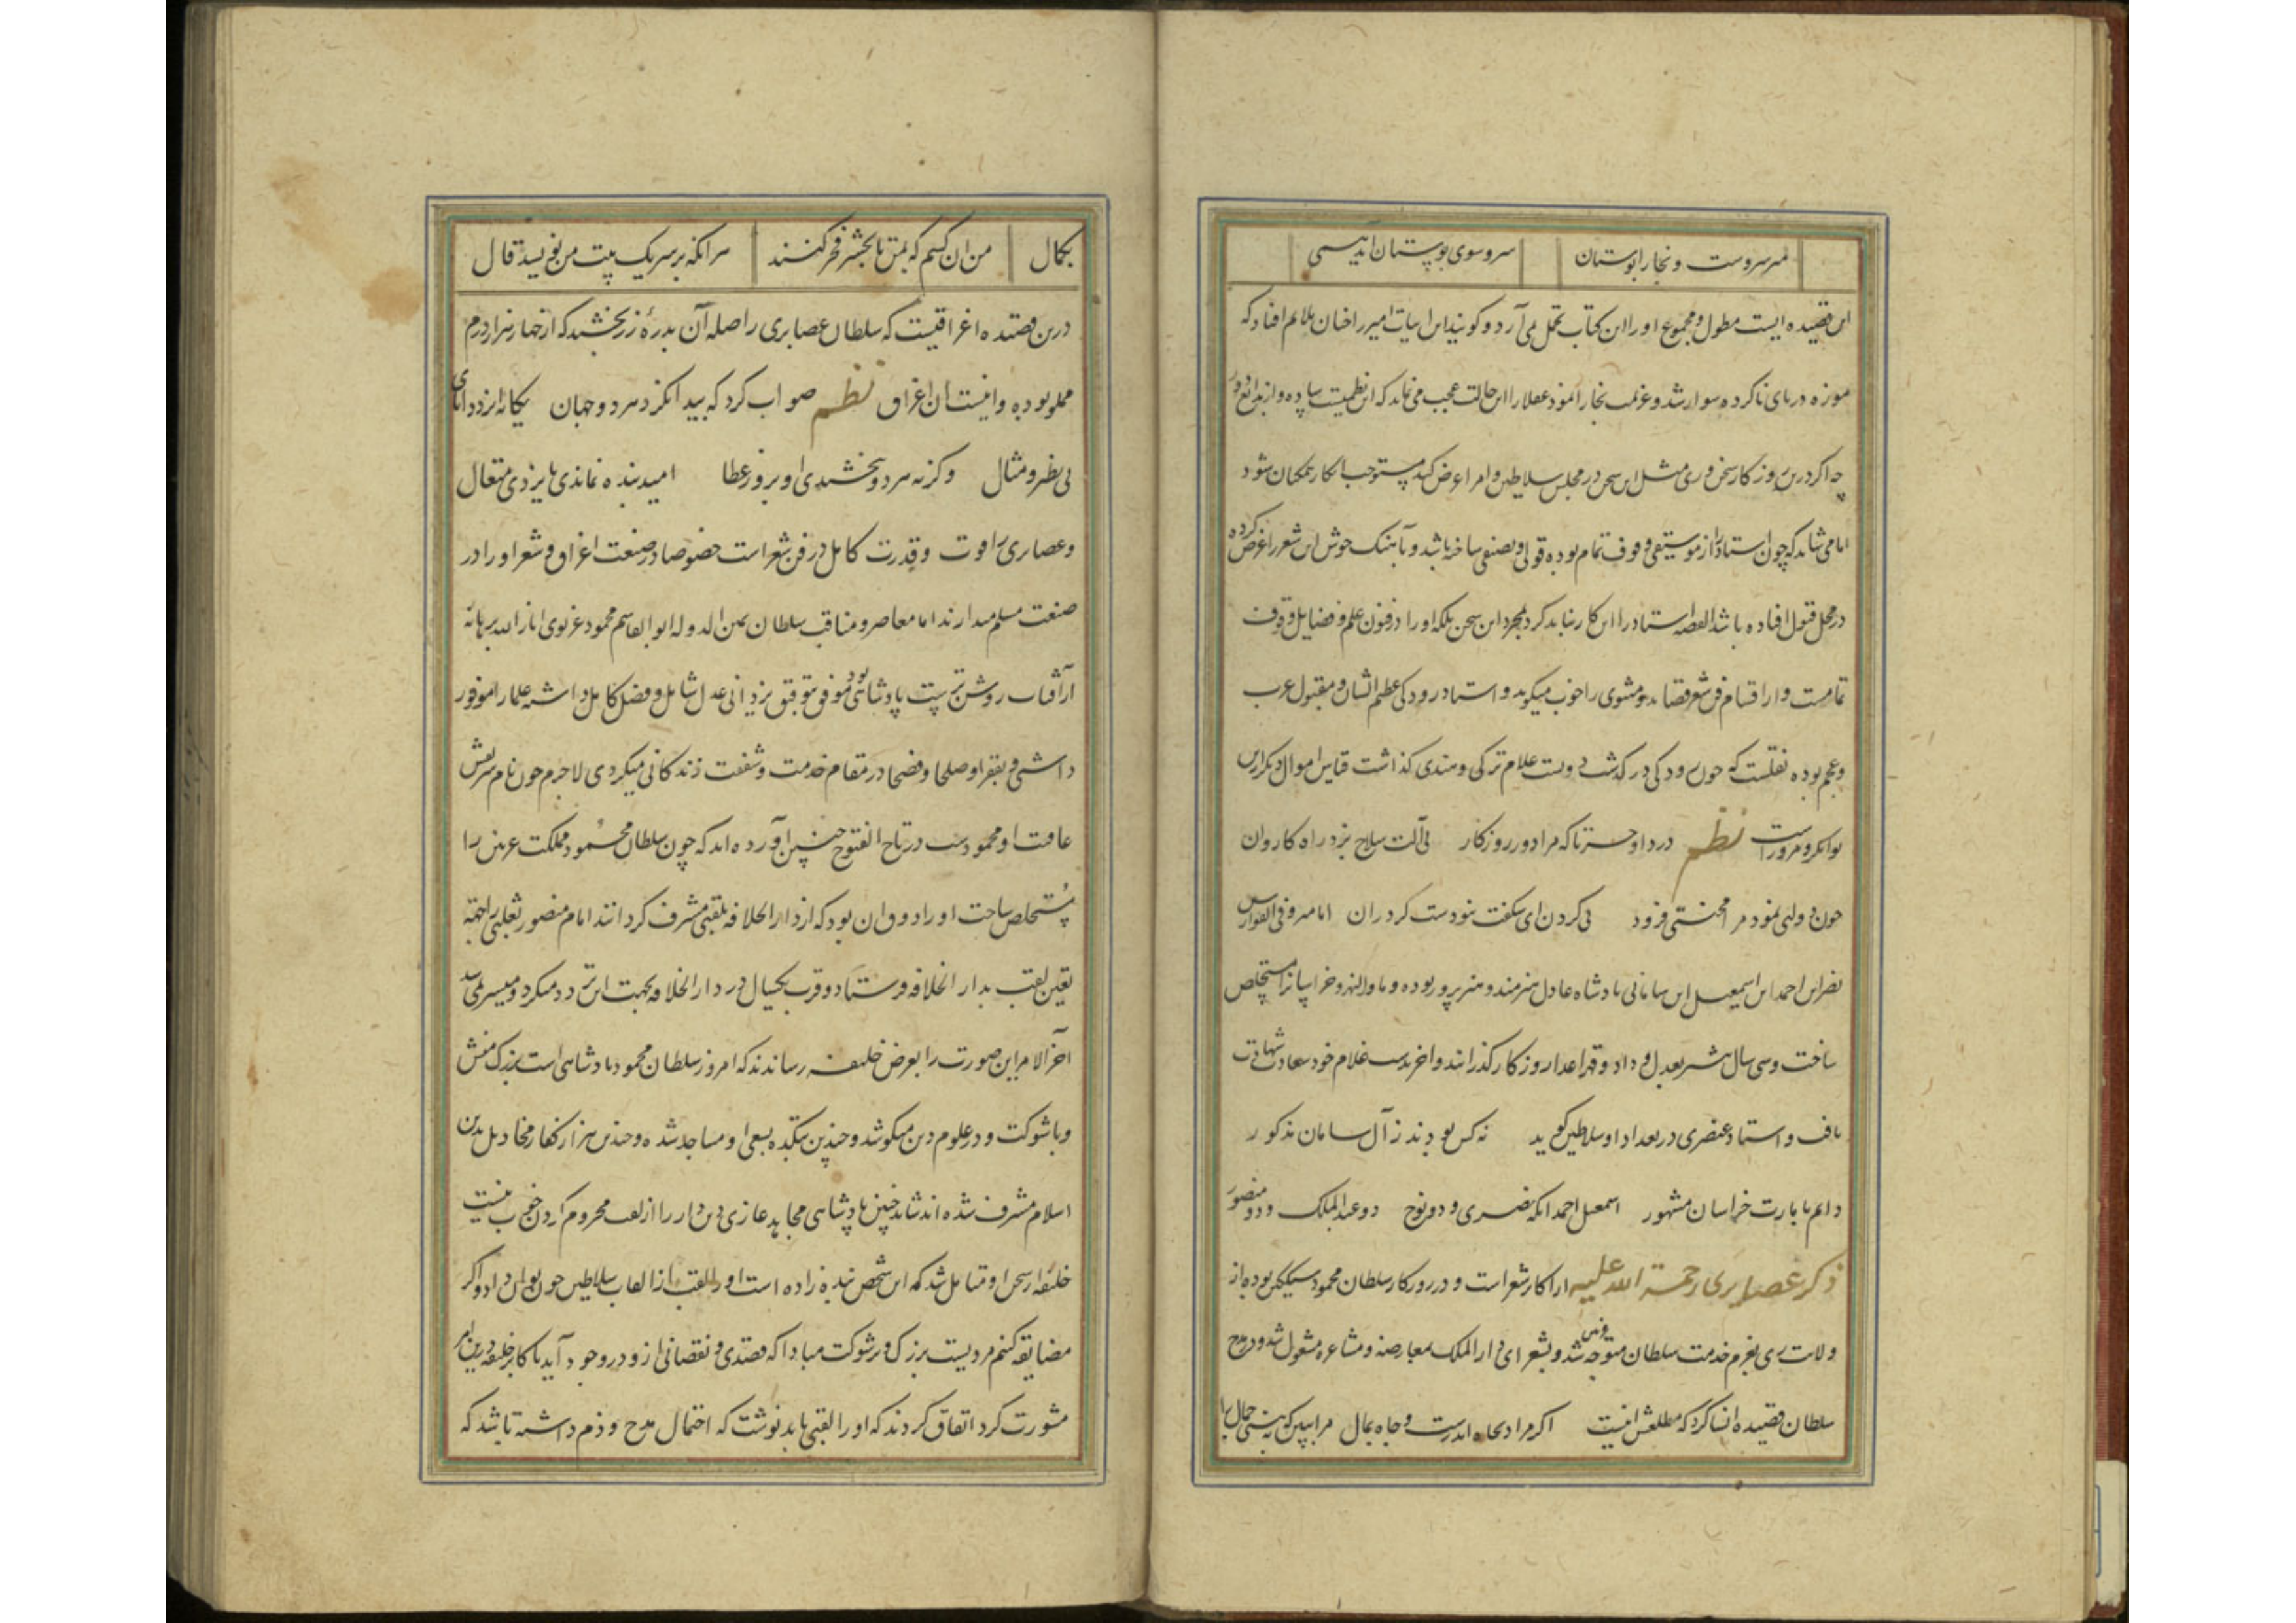 میر سروست و بخارا بوستان سرو سوی بوستان آید همی
این قصیده ایست مطول و مجموع او را این کتاب تحمل نمی آرد و گویند این ابیات امیر را چنان ملایم افتاد که
موزه در پای ناکرده سوار شد و عزیمت بخارا نمود عقلا را این حالت عجب می نماید که این نظمیست ساده و از بدایع دور
چه اگر درین روزگار سخن وری مثل این سخن در مجلس سلاطین و امرا عرض کند مستوجب انکار همکنان شود
اما می شاید که چون استاد را از موسیقی وقوف تمام بوده قولی و تصنیفی ساخته باشد و بآهنک خوش این شعر را عرض کرده
در محل قبول افتاده باشد القصه استاد را انکار نباید کرد بمجرد این سخن بلکه او را در فنون علم و فضایل وقوف
تمامست و از اقسام فن شعر قصاید و مثنوی را خوب میکوید و استاد رودکی عظیم الشان و مقبول عرب
و عجم بوده نقلست که چون رودکی در کذشت دویست غلام ترکی و هندی کذاشت قیاس اموال دیکر ازین
توان کرد و مروراست نظم دردا و حسرتا که مرا دور روزکار بی آلت سلاح بزد راه کاروان
چون دولتی نمود مرا محنتی فزود بی کردن ای شکفت نبودست کردران اما میر
نصر ابن احمد ابن اسمعیل ابن سامانی پادشاه عادل هنرمند و هنرپرور بوده و ماوراالنهر و خراسانرا مستخلص
ساخت و سی سال بعدل و داد و قهر اعدا روزکار کذرانید و آخر بدست غلام خود سعادت شهادت
یافت و استاد عنصری در تعداد او سلاطین کوید نه کس بودند ز آل سامان مذکور
دایم بامارت خراسان مشهور اسمعیل احمد انکه نصری و دو نوح دو عبدالملک و دو منصور
ذکر عصایری رحمة الله علیه از اکابر شعراست و در روزکار سلطان محمود سبکتکین بوده از
ولایت ری بعزم خدمت سلطان متوجه غزنین شد و بشعرای دارالملک معارضه و مشاعره مشغول شد و در مدح
سلطان قصیده انشا کرد که مطلعش اینست اکر مراد بجاه اندرست و جاه بمال مرا ببین که ببینی جمال را
بکمال من آن کسم که بمن تا بحشر فخر کنند هر آنکه بر سر یک بیت من نویسد قال
درین قصیده اغراقیست که سلطان عصایری را صله آن بدرۀ زر بخشید که از چهار هزار درم
مملو بوده و اینست آن اغراق نظم صواب کرد که پیدا نکرد هر دو جهان یکانه ایزد دادار
بی نظیر و مثال وکرنه هر دو بخشیدی او بروز عطا امید بنده نماندی بایزد متعال
و عصایری را قوت و قدرت کامل در فن شعر است خصوصا در صنعت اغراق و شعرا او را در
صنعت مسلم میدارند اما معاصر و مناقب سلطان یمین الدوله ابوالقاسم محمود غزنوی انار الله برهانه
از آفتاب روشن ترست پادشاهی بود موفق بتوفیق یزدانی عدل شامل و فضل کامل داشته علما را موقور
داشتی و بفقرا و صلحا و فضلا در مقام خدمت و شفقت زندکانی میکردی لاجرم چون نام شریفش
عاقبت او محمودست در تاج الفتوح چنین آورده اند که چون سلطان محمود مملکت غزنین را
مستخلص ساخت او را ذوق آن بود که از دارالخلافه بلقبی مشرف کردانند امام منصور ثعلبی را جهة
تعین لقب بدارالخلافه فرستاد و قرب یکسال در دارالخلافه بجهت این تردد میکرد و میسر نمی شد
آخرالامر این صورت را بعرض خلیفه رسانیدند که امروز سلطان محمود پادشاهی است بزرک منش
و با شوکت و در علوم دین میکوشد و چندین بتکده بسعی او مساجد شده و چندین هزار کفار بدین
اسلام مشرف شده اند نشاید چنین پادشاهی مجاهد غازی دین دار را از لقب محروم کردن خوب نیست
خلیفه ازین سخن او متأمل شد که این شخص بنده زاده است او را لقب از القاب سلاطین چون توان داد و اکر
مضایقه کنم مردیست بزرک و پر شوکت مبادا که قصدی و نقصانی ازو در وجود آید با اکابر خلیفه درین امر
مشورت کرد اتفاق کردند که او را لقبی باید نوشت که احتمال مدح و ذم داشته باشد که